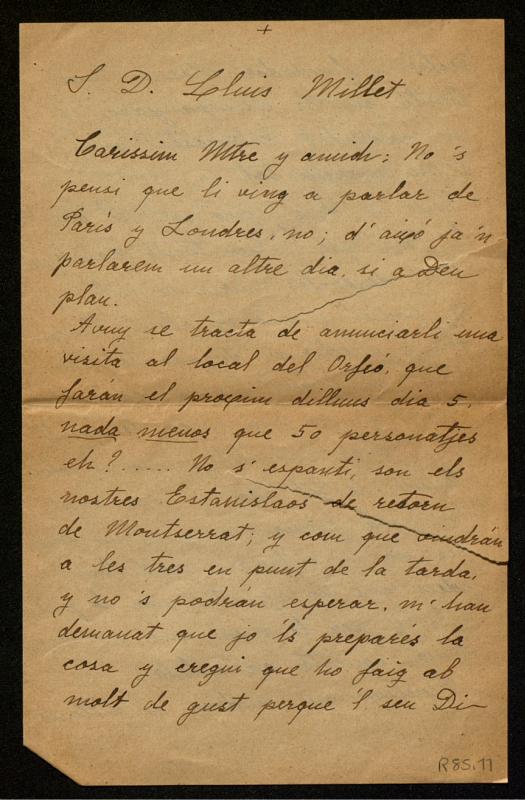 +
S. D. Lluis Millet
Carissim Mtre y amich: No 's
pensi que li ving a parlar de
París y Londres, no; d' aixó ja 'n
parlarem un altre dia, si a Deu
plau.
Avuy se tracta de anunciarli una
visita al local del Orfeó, que
farán el proxim dilluns dia 5,
nada menos que 50 personatjes
eh? ..... No s' espanti, son els
nostres Estanislaos de retorn
de Montserrat; y com que vindrán
a les tres en punt de la tarda,
y no 's podrán esperar, m' han
demanat que jo 'ls preparés la
cosa y cregui que ho faig ab
molt de gust perque 'l seu Di-
R85.11